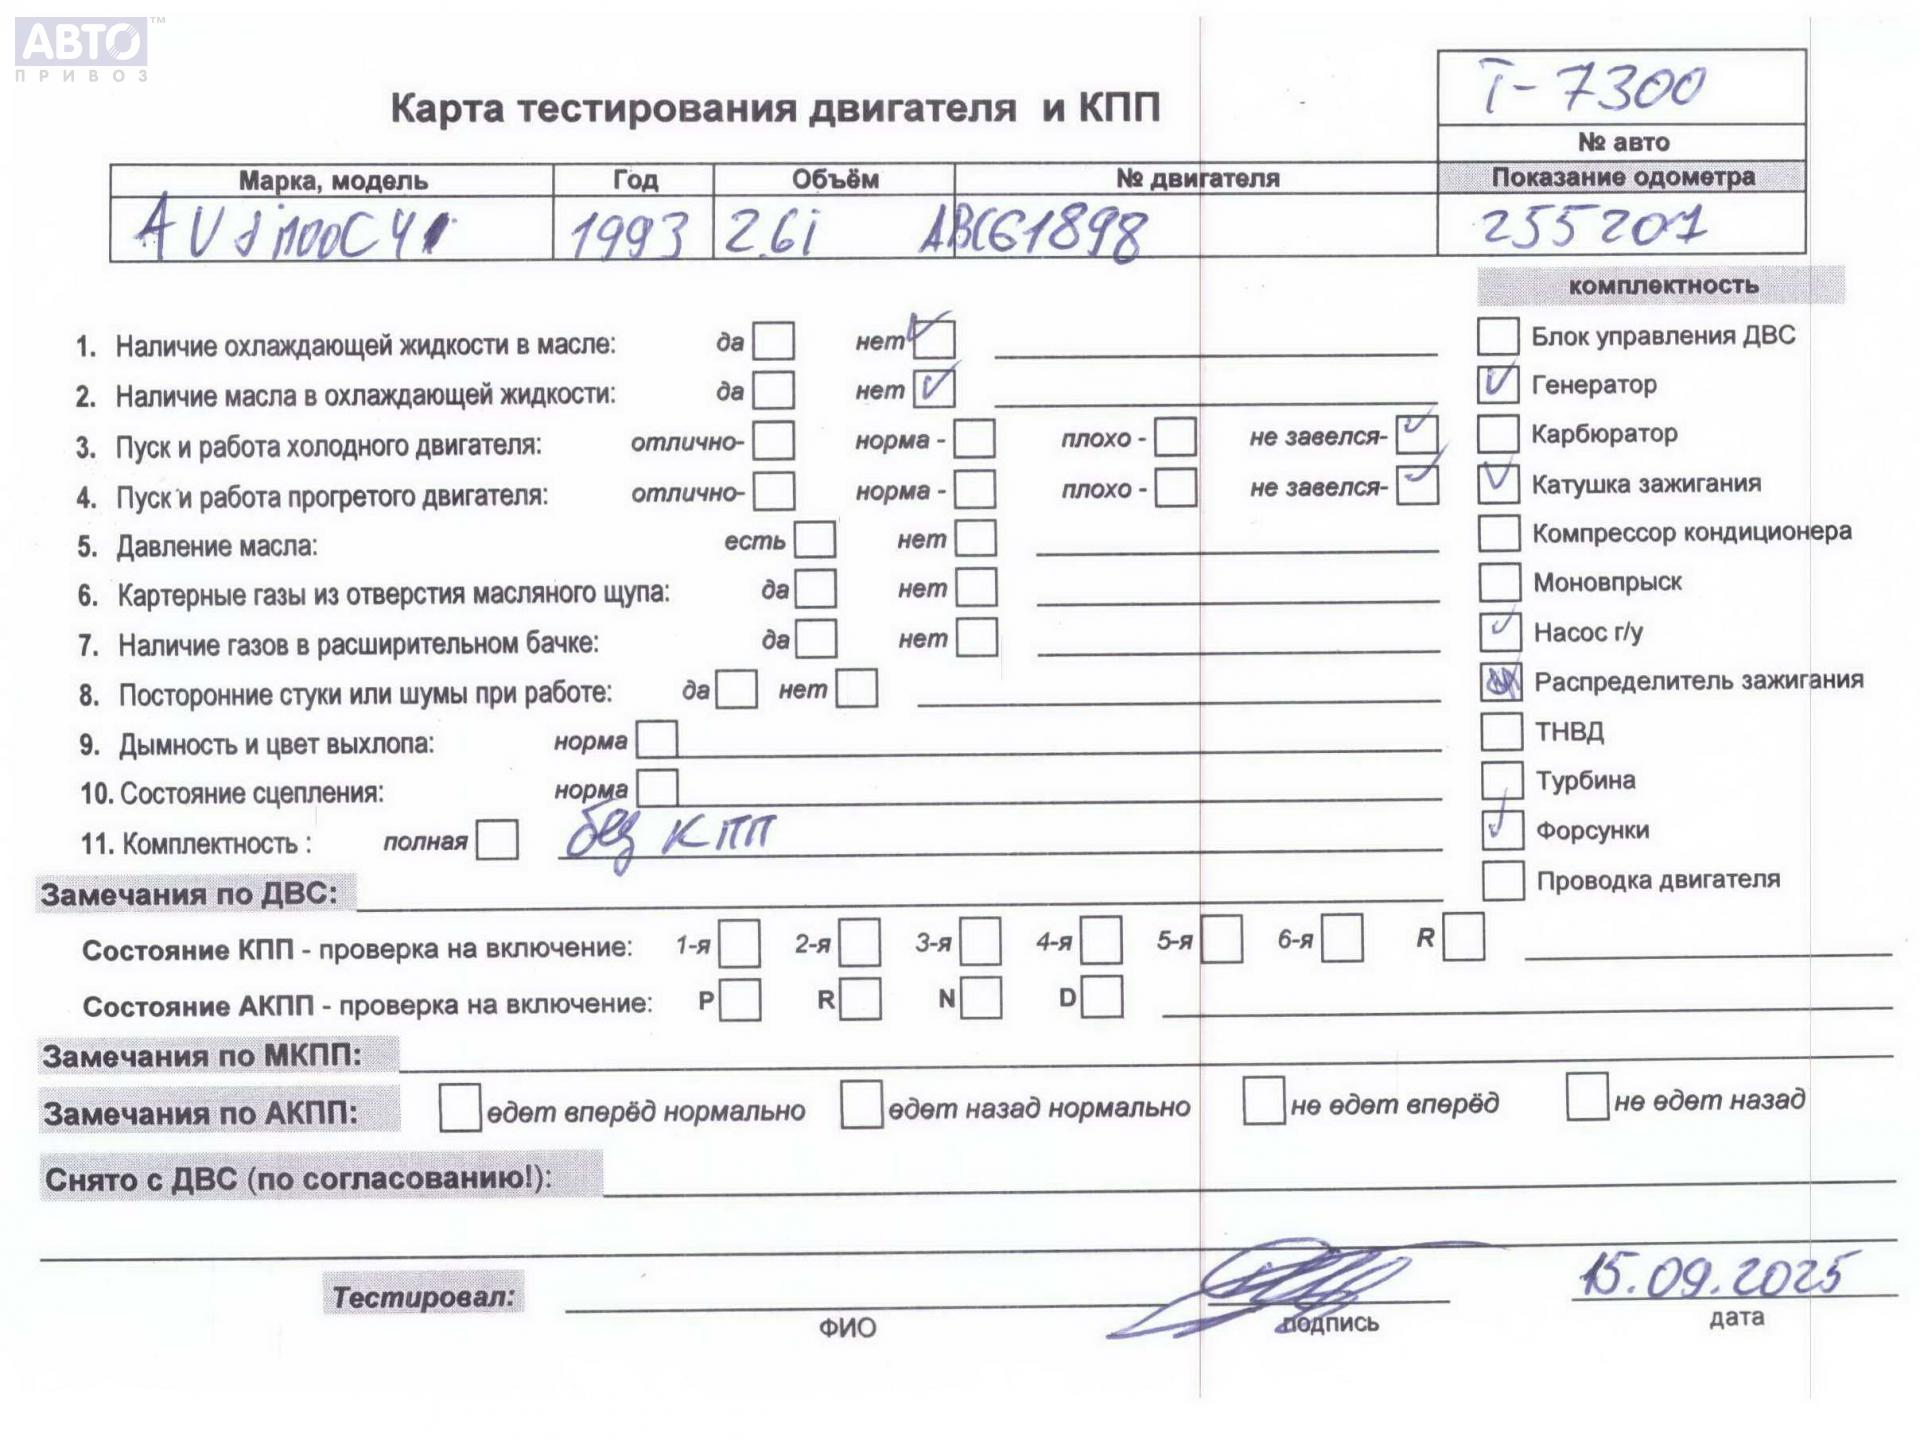 АВТО™
ПРИВОЗ
Т-7300
Карта тестирования двигателя и КПП
№ авто
Марка, модель Год Объём № двигателя Показание одометра
1993 2.6i ABC61898 255207
комплектность
1. Наличие охлаждающей жидкости в масле: да нет
Блок управления ДВС
2. Наличие масла в охлаждающей жидкости: да нет
Генератор
3. Пуск и работа холодного двигателя: отлично- норма - плохо - не завелся-
Карбюратор
4. Пуск и работа прогретого двигателя: отлично- норма - плохо - не завелся-
Катушка зажигания
5. Давление масла: есть нет
Компрессор кондиционера
6. Картерные газы из отверстия масляного щупа: да нет
Моновпрыск
7. Наличие газов в расширительном бачке: да нет
Насос г/у
8. Посторонние стуки или шумы при работе: да нет
Распределитель зажигания
9. Дымность и цвет выхлопа: норма
ТНВД
10. Состояние сцепления: норма
Турбина
11. Комплектность : полная без КПП
Форсунки
Замечания по ДВС:
Проводка двигателя
Состояние КПП - проверка на включение: 1-я 2-я 3-я 4-я 5-я 6-я R
Состояние АКПП - проверка на включение: P R N D
Замечания по МКПП:
Замечания по АКПП: едет вперёд нормально едет назад нормально не едет вперёд не едет назад
Снято с ДВС (по согласованию!):
15.09.2025
Тестировал:
ФИО подпись дата